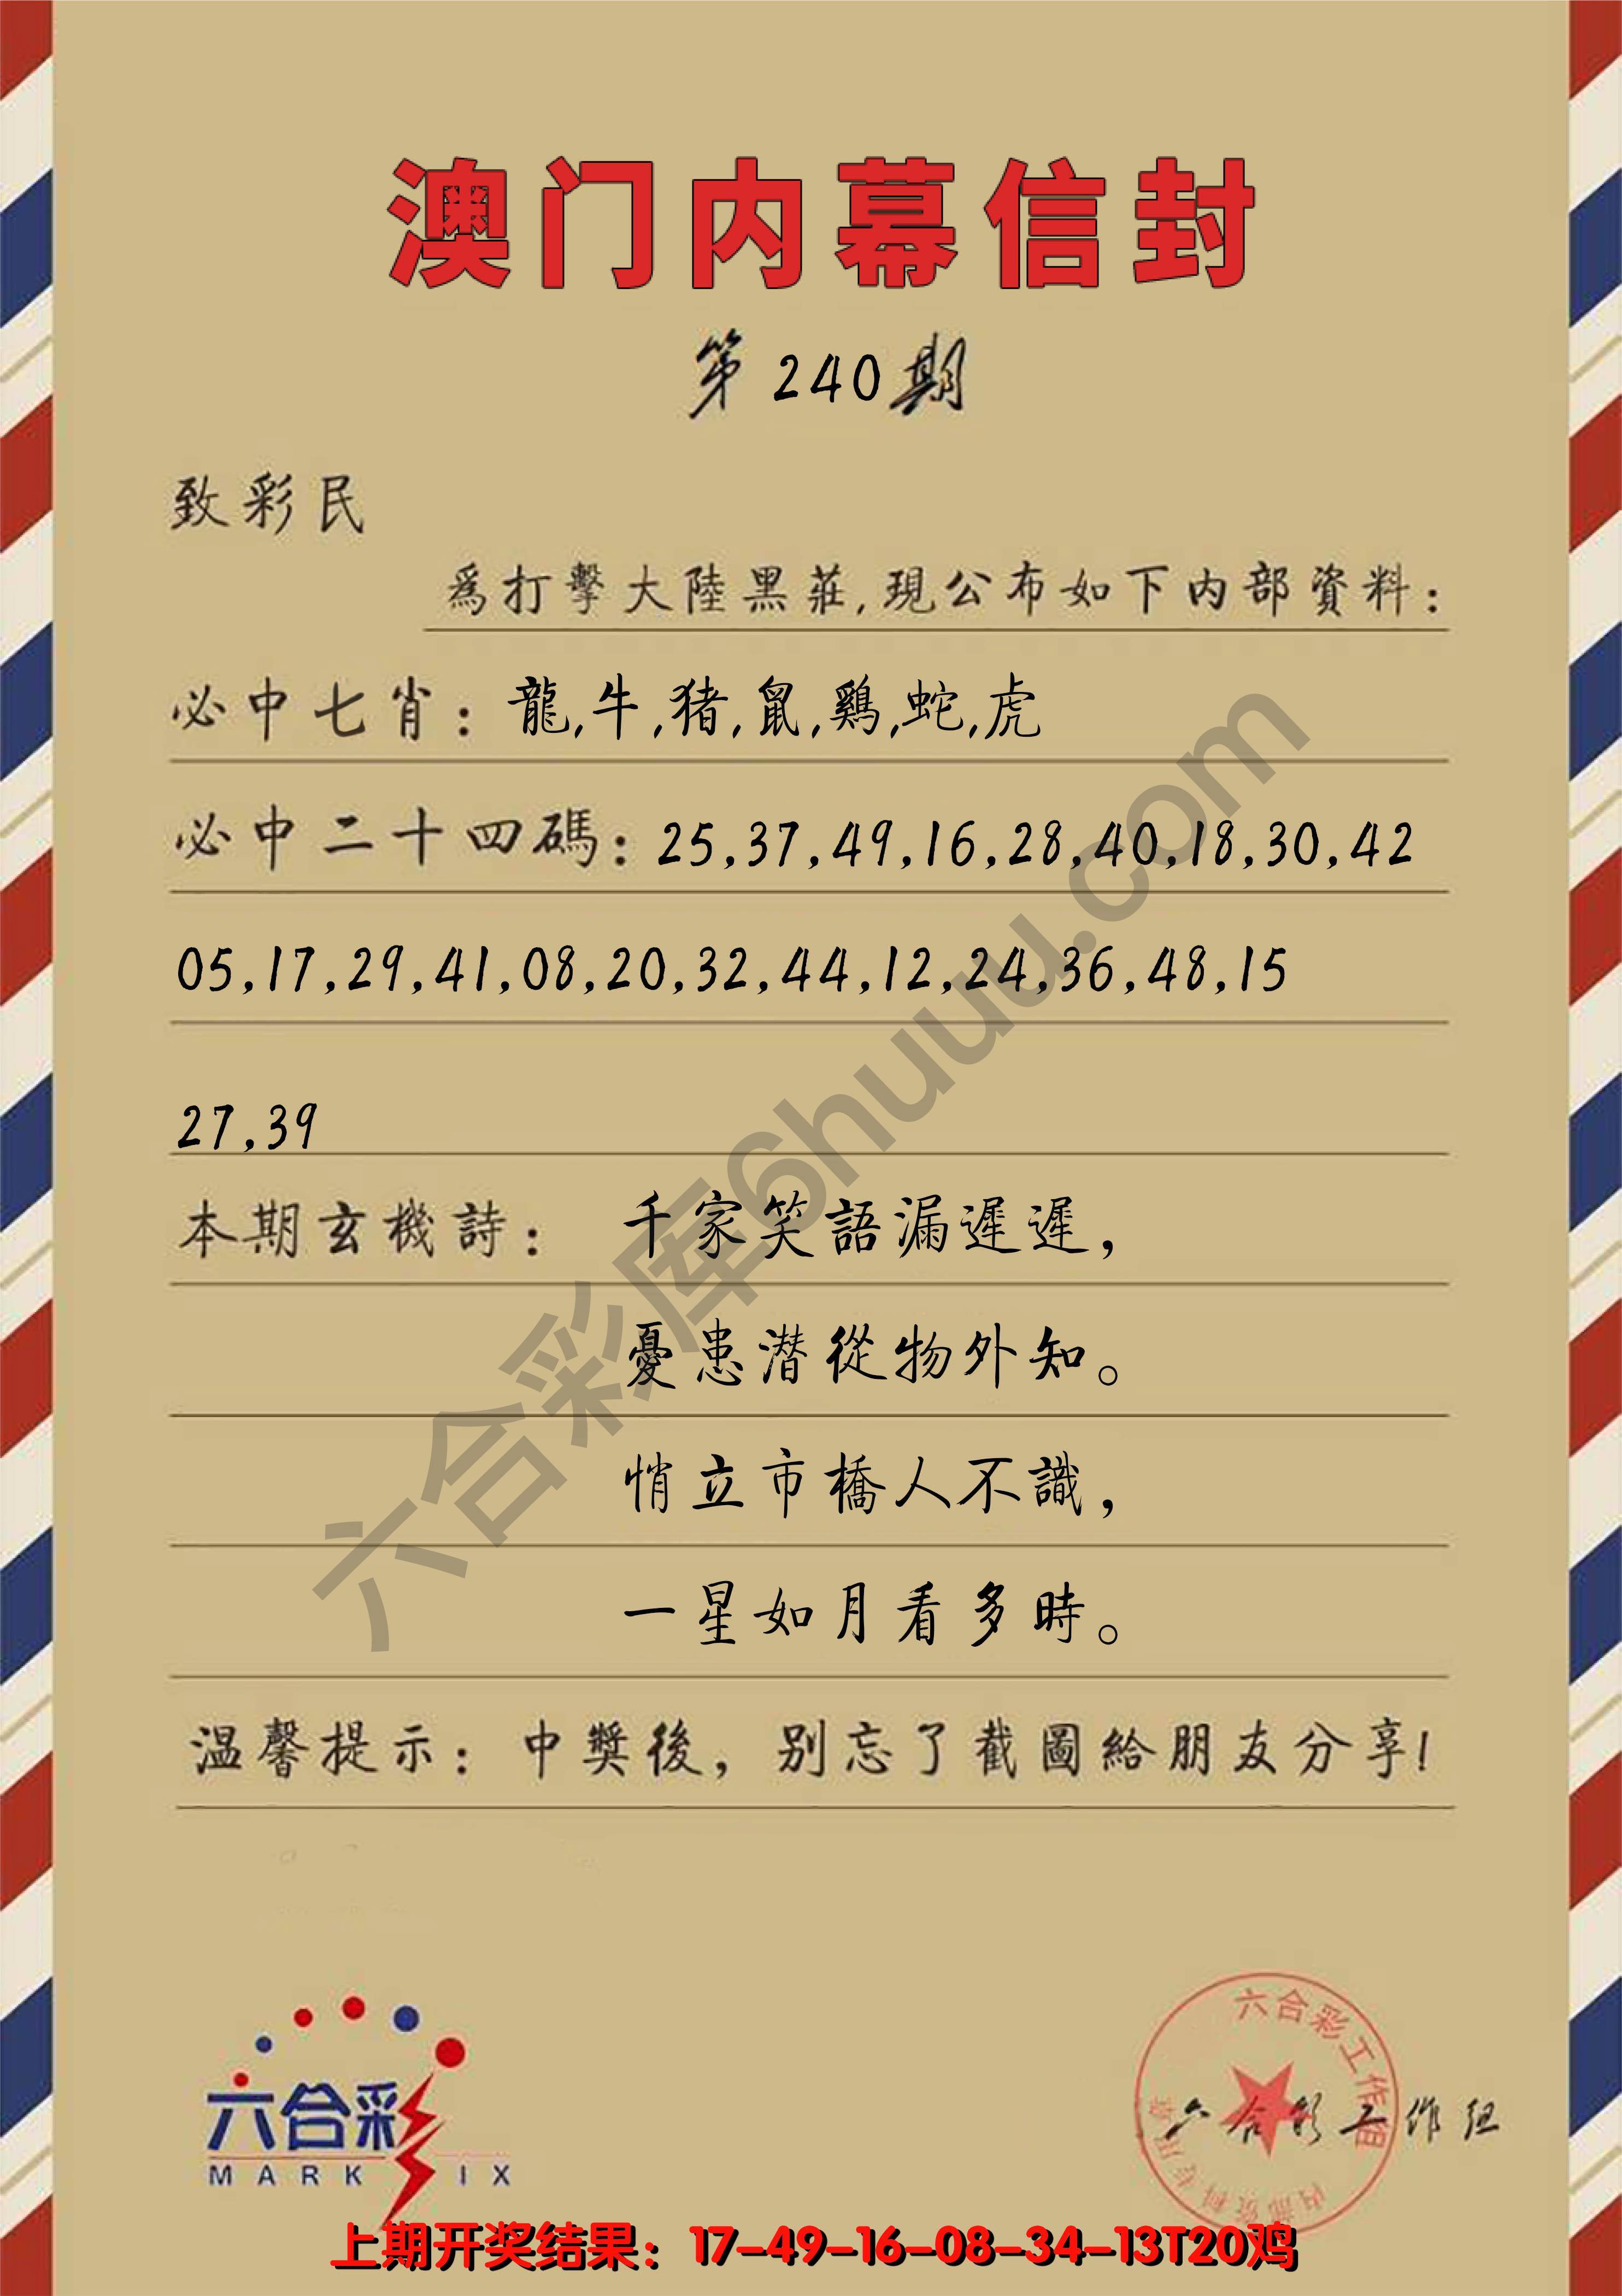 澳门内幕信封
第240期
致彩民
爲打擊大陸黑莊,現公布如下内部資料:
必中七肖:龍,牛,猪,鼠,鷄,蛇,虎
必中二十四碼:25,37,49,16,28,40,18,30,42
05,17,29,41,08,20,32,44,12,24,36,48,15
27,39
本期玄機詩: 千家笑語漏遲遲,
憂患潜從物外知。
悄立市橋人不識,
一星如月看多時。
温馨提示:中獎後,别忘了截圖給朋友分享!
六合彩库6huuu.com
六合彩
MARK IX
六合彩工作组
六合彩工作组
上期开奖结果:17-49-16-08-34-13T20鸡